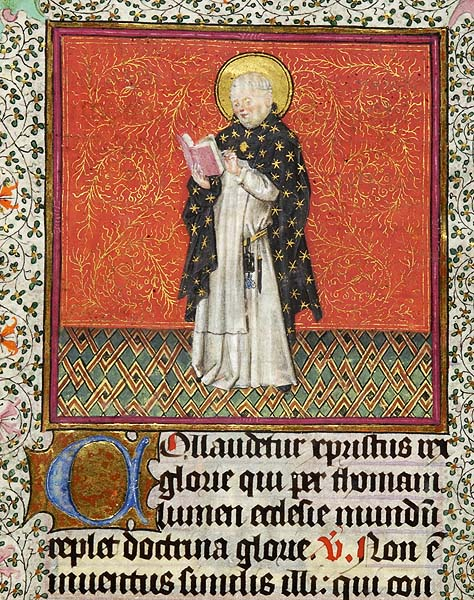 Collaudetur xpristus rex
glorie qui per thomam
lumen ecclesie mundū
replet doctrina glorie. V. Non ē
inuentus similis illi: qui con